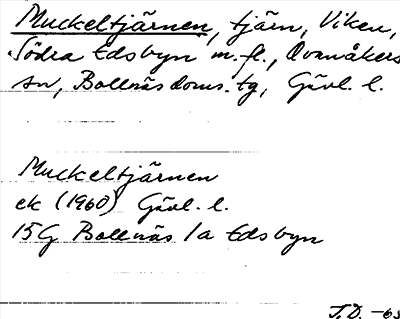 Muckeltjärnen, tjärn, Viken,
Södra Edsbyn m.fl., Ovanåkers
sn, Bollnäs doms. tg, Gävl. l.
Muckeltjärnen
ek (1960) Gävl. l.
15G Bollnäs 1a Edsbyn
J.D. -65